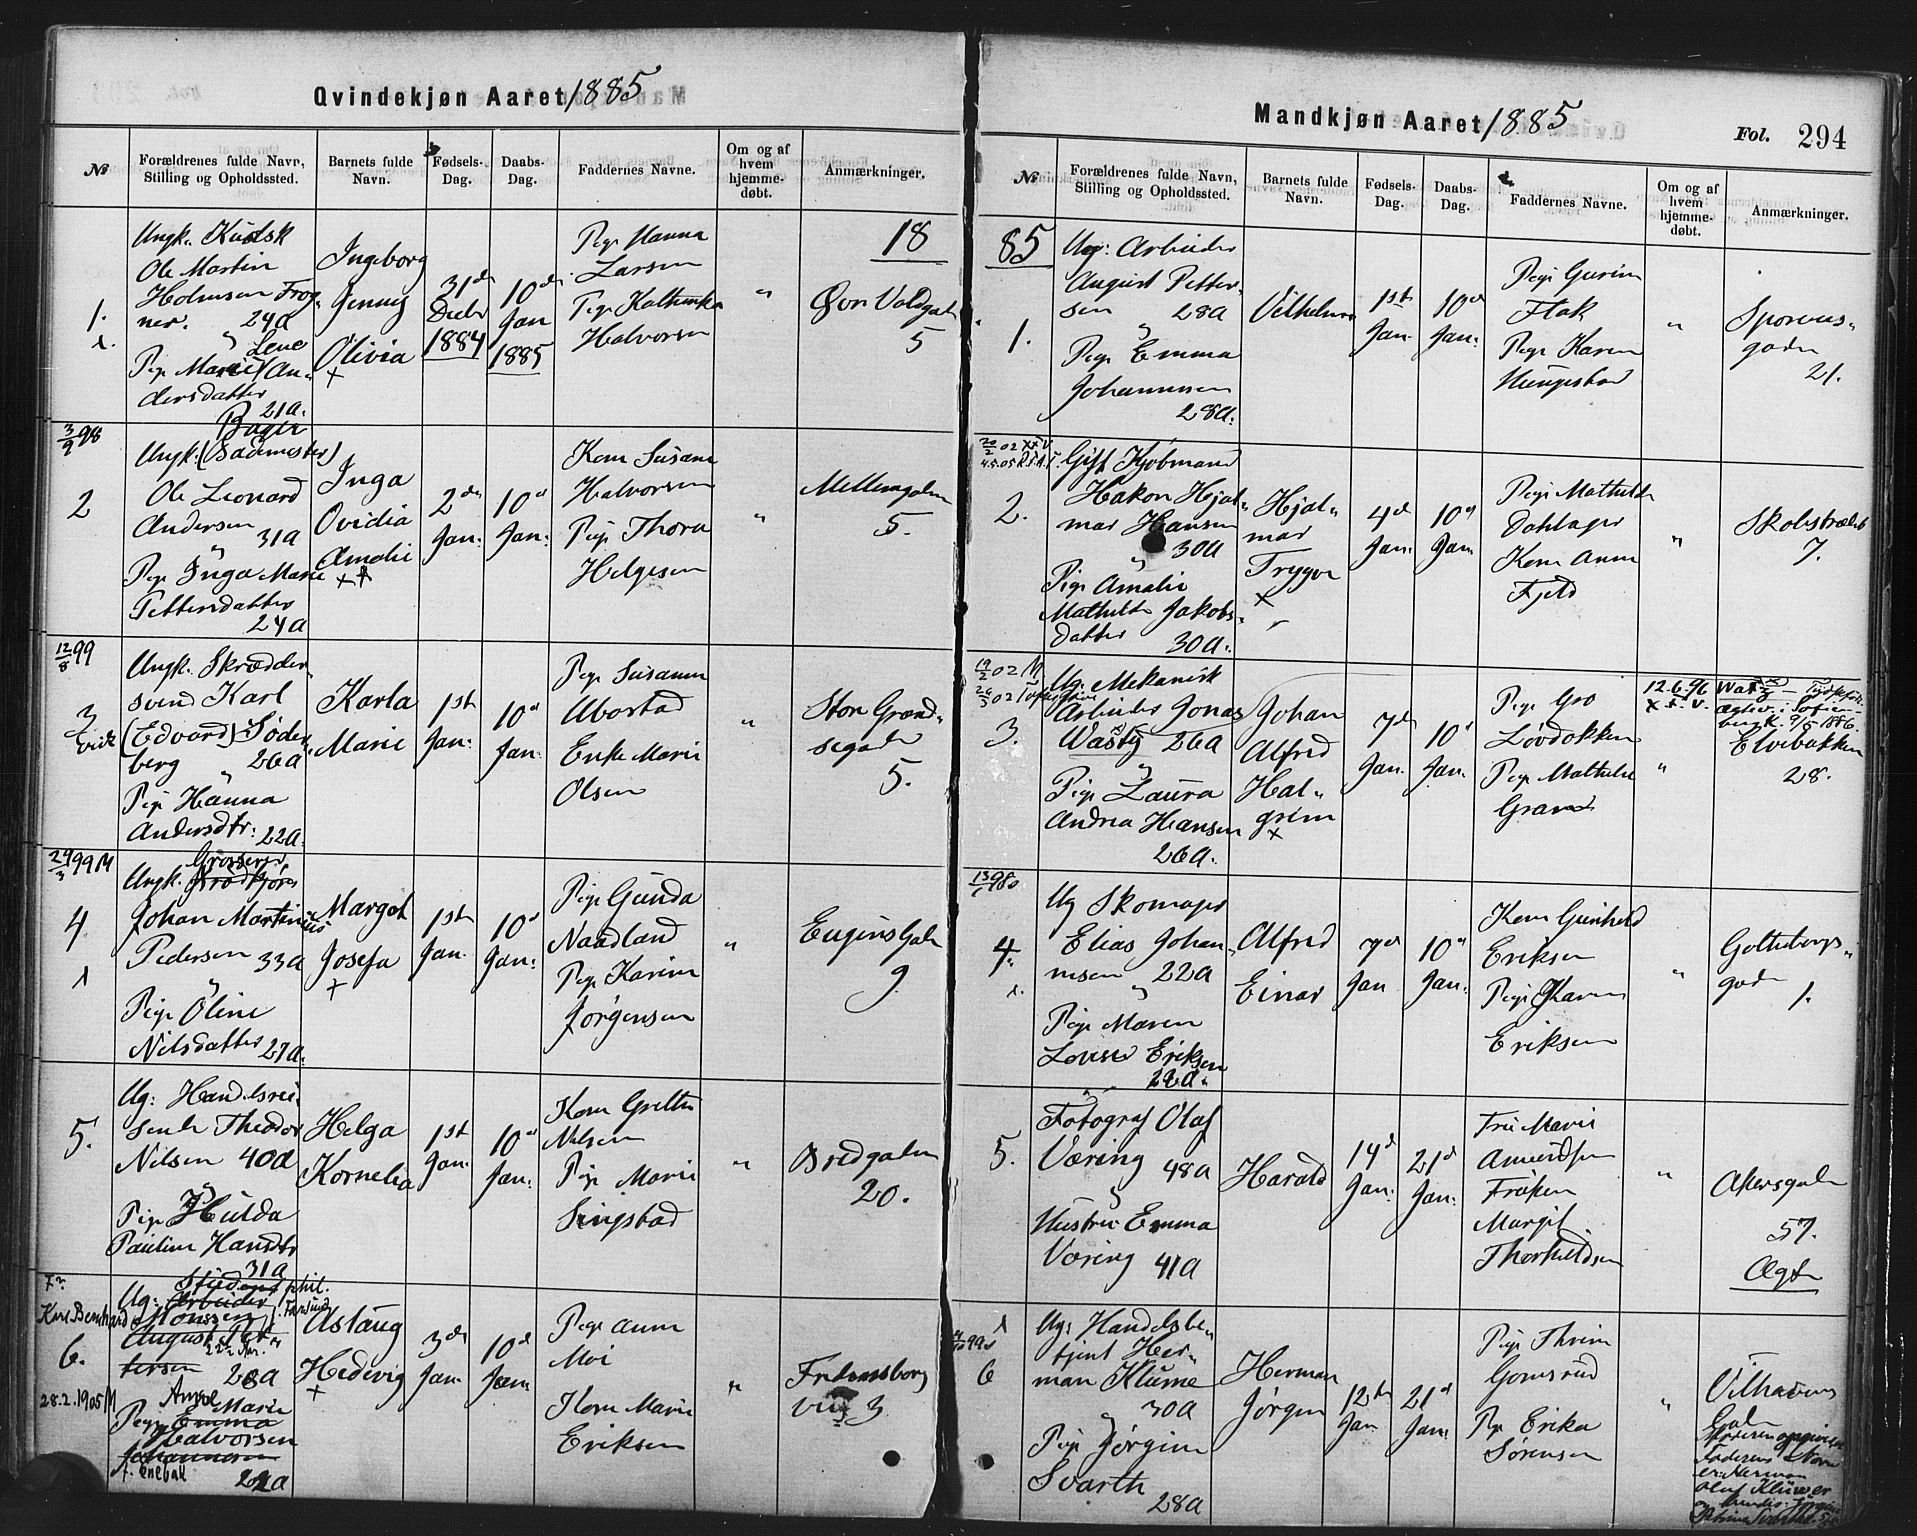 Qvindekjøn Aaret 1885
№
Forældrenes fulde Navn, Stilling og Opholdssted.
Barnets fulde Navn.
Fødsels-Dag.
Daabs-Dag.
Faddernes Navne.
Om og af hvem hjemme-døbt.
Anmærkninger.
1.
Ungk. Kudsk
Ole Martin
Holmsen Frog-
ner. 24a
"
Lene
Pige Marie An-
dersdatter
21a.
Ingeborg
Jenny
Olivia
31te
Decbr
1884
10de
Jan
1885
Pige Hanna
Larsen
Pige Kathinka
Halvorsen
"
18
Øvre Voldgade
5
3/9 98
2
Bager
Ungk. (Badmester)
Ole Leonard
Andersen
31a
"
Pige Inga Marie
Pettersdatter
24a
Inga
Ovidia
Amalie
2den
Jan:
10de
Jan:
Kone Susane
Halvorsen
Pige Thora
Helgesen
"
Møllergaden
5.
12/8 99
3
Ungk. Skrædder-
svend Karl
(Edvard) Søder-
berg 26a
"
Pige Hanna
Andersdtr: 22a.
Karla
Marie
1ste
Jan:
10de
Jan:
Pige Susanne
Abostad
Enke Marie
Olsen
"
Store Grænd-
segade
5.
29/3 99 M
4
Grosserer
Ungk. Brødkjører
Johan Martinius
Pedersen 33a
"
Pige Oline
Nilsdatter 27a.
Margot
Josefa
1ste
Jan.
10de
Jan:
Pige Gunda
Naadland
Pige Karine
Jørgensen
"
Eugenis Gade
9
5.
Ug: Handelsrei-
sende Theodor
Nilsen 40a
"
Pige Hulda
Pauline Hansdtr
31a
Helga
Kornelia
1ste
Jan:
10de
Jan:
Kone Grethe
Nilsen
Pige Marie
Singstad
"
Bredgaden
20.
Karl Bernhard
6.
28.2.1905 M
Student phil.
Ug: Arbeider
Monssen
August Pet-
tersen 28a
Pige Marie
Emma
Halvorsen
Johannesen
22a
Aslaug
Hedevig
3de
Jan.
10de
Jan:
Pige Anne
Moi
Kone Marie
Eriksen
"
Fredensborg
vei 3
Mandkjøn Aaret 1885
Fol. 294
№
Forældrenes fulde Navn, Stilling og Opholdssted.
Barnets fulde Navn.
Fødsels-Dag.
Daabs-Dag.
Faddernes Navne.
Om og af hvem hjemme-døbt.
Anmærkninger.
85
1.
Ug: Arbeider
August Petter-
sen 28a
"
Pige Emma
Johannesen
28a.
Vilhelm
1ste
Jan.
10de
Jan:
Pige Gurine
Flak
Pige Karen
Haugestad
"
Sporveis-
gaden
21.
2.
Gift Kjøbmand
Hakon Hjal-
mar Hansen
30a
"
Pige Amalie
Mathilde Jakobs-
datter 30a.
Hjal-
mar
Trygve
4de
Jan:
10de
Jan:
Pige Mathilde
Dahlager
Kone Anne
Fjeld
"
Skolestrædet
7.
19/2 02 M
3.
Ug. Mekanisk
Arbeider Jonas
Wasty 26a
"
Pige Laura
Andrea Hansen
26a.
Johan
Alfred
Hal-
grim
7de
Jan.
10de
Jan:
Pige Gro
Lövdokken
Pige Mathilde
Grane
"
12.6.96
Elvebakken
28.
4.
Ug Skomager
Elias Johan-
nesen 22a
"
Pige Maren
Lovise Eriksen
22a.
Alfred
Einar
7de
Jan
10de
Jan.
Kone Gunhild
Eriksen
Pige Karen
Eriksen
"
Gøtheborgs-
gade
1.
5.
Fotograf Olaf
Væring 48a
Hustru Emma
Væring 41a
Harald
14de
Jan:
21de
Jan:
Fru Marie
Amundsen
Frøken
Margit
Thorkildsen
"
Akersgaden
57.
Ægte
6
Ug: Handelsbe-
tjent Her-
man Klüme
30a
"
Pige Jørgine
Svarth
28a
Herman
Jørgen
12te
Jan
21de
Jan:
Pige Thrine
Gomsrud
Pige Erika
Sørensen
"
Moderen opgiver
Faderens Navn
er: Herman
Oluf Klüwer